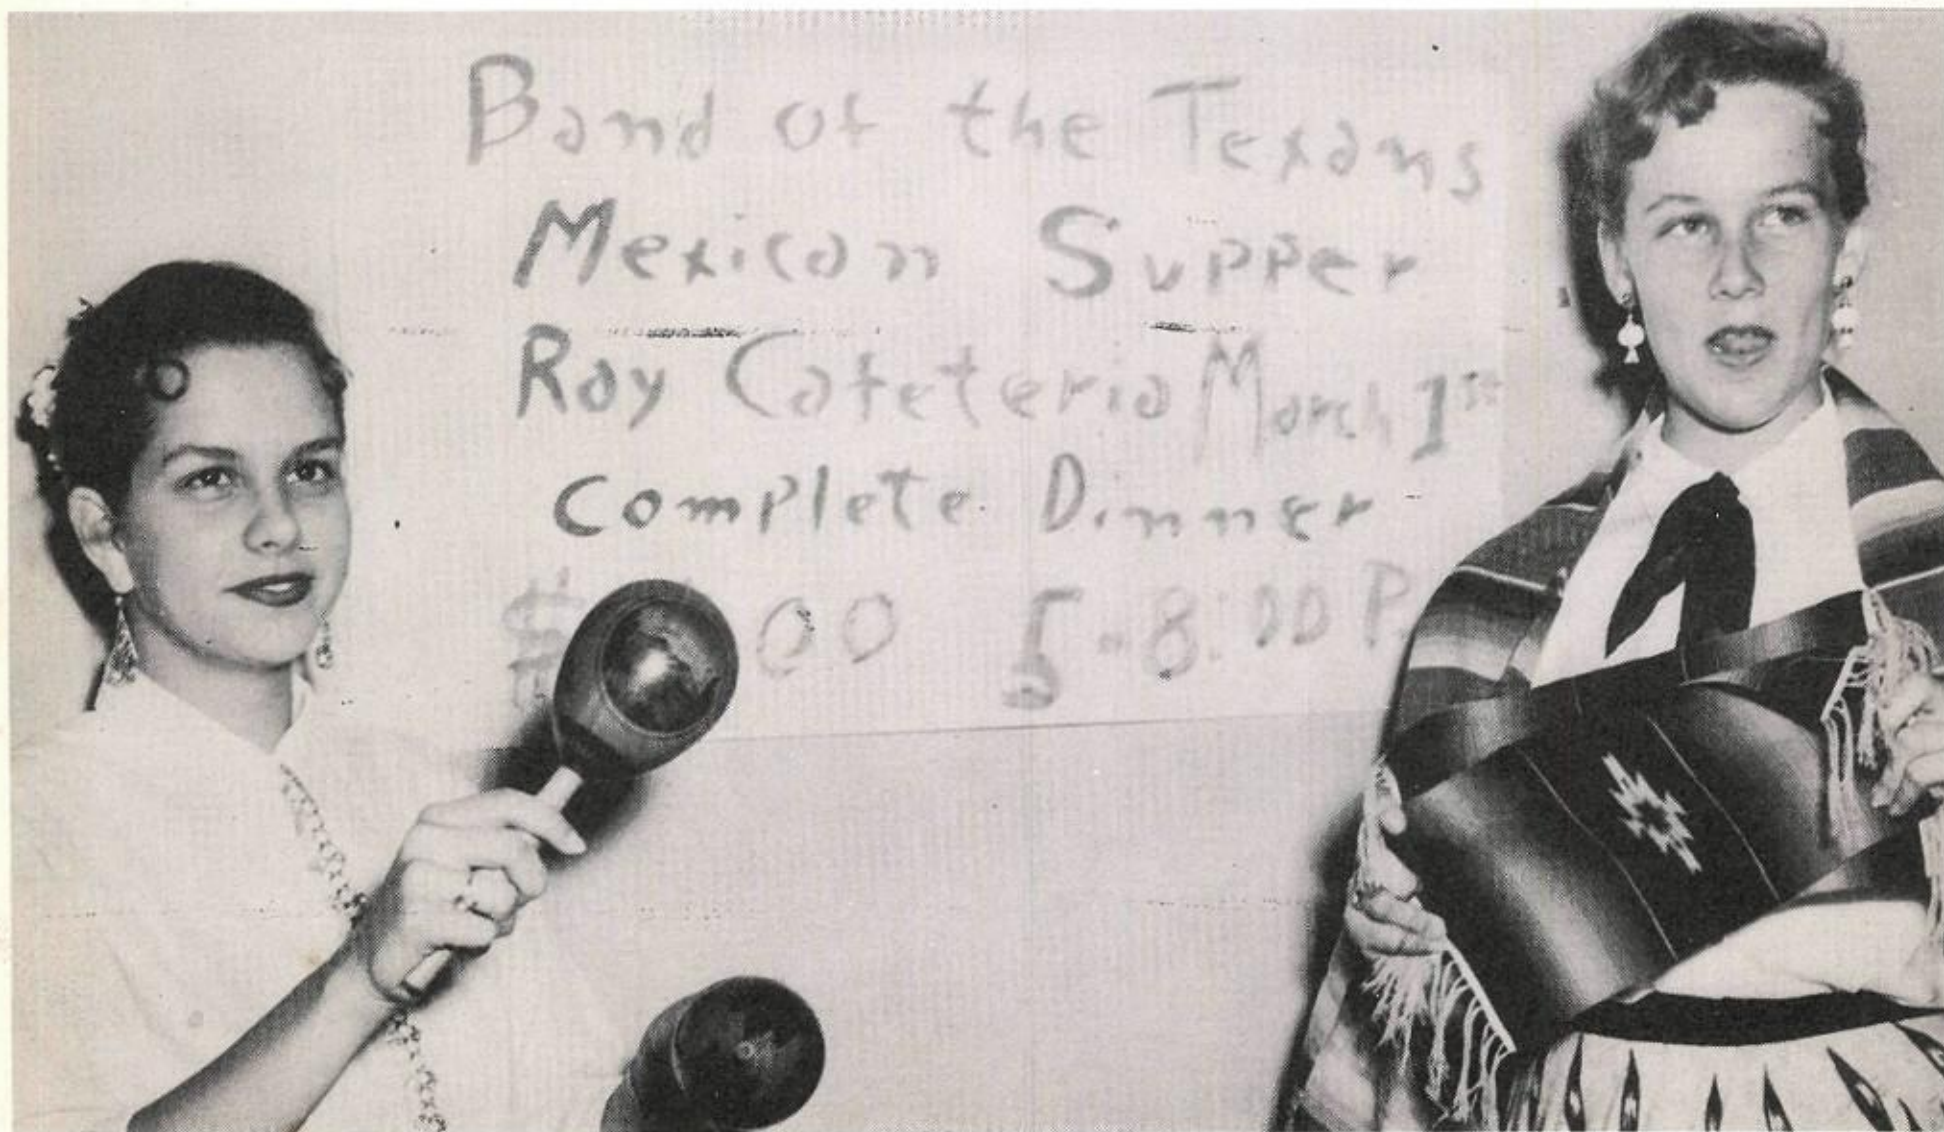 Band of the Texans
Mexican Supper
Ray Cafeteria March 1st
Complete Dinner
$ 00 5-8:00 P.